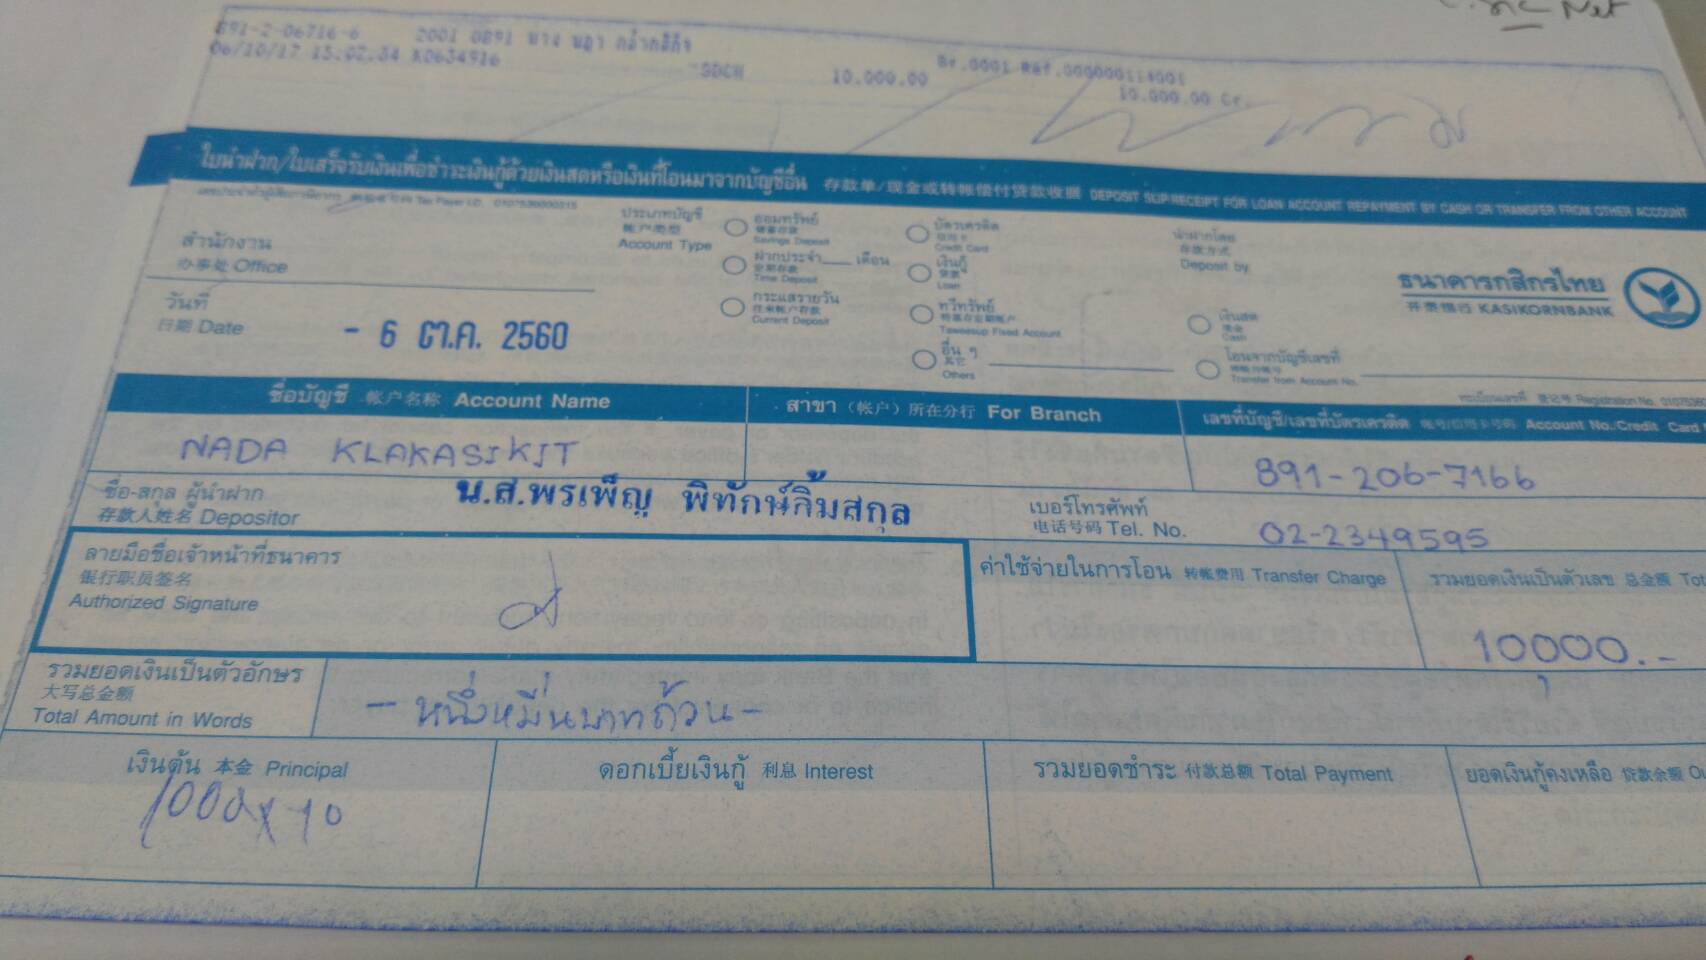 891-2-06716-6 2001 0891 นาง นฎา กล้ากสิกิจ
06/10/17 15:02:34 K0634916 SDCH 10,000.00 Br.0001 Ref.000000114001
10,000.00 Cr.
ใบนำฝาก/ใบเสร็จรับเงินเพื่อชำระเงินกู้ด้วยเงินสดหรือเงินที่โอนมาจากบัญชีอื่น 存款单/现金或转帐偿付贷款收据 DEPOSIT SLIP/RECEIPT FOR LOAN ACCOUNT REPAYMENT BY CASH OR TRANSFER FROM OTHER ACCOUNT
Tax Payer I.D. 0107536000315
สำนักงาน
办事处 Office
วันที่
日期 Date
- 6 ต.ค. 2560
ประเภทบัญชี
帐户类型
Account Type
ออมทรัพย์
储蓄存款
Savings Deposit
ฝากประจำ เดือน
定期存款
Time Deposit
กระแสรายวัน
往来帐户存款
Current Deposit
บัตรเครดิต
信用卡
Credit Card
เงินกู้
贷款
Loan
ทวีทรัพย์
Taweesup Fixed Account
อื่น ๆ
其它
Others
นำฝากโดย
存款方式
Deposit by
เงินสด
现金
Cash
โอนจากบัญชีเลขที่
Transfer from Account No.
ธนาคารกสิกรไทย
开泰银行 KASIKORNBANK
ทะเบียนเลขที่ 登记号 Registration No.
ชื่อบัญชี 帐户名称 Account Name
สาขา (帐户) 所在分行 For Branch
เลขที่บัญชี/เลขที่บัตรเครดิต 帐号/信用卡号码 Account No./Credit Card
NADA KLAKASIKIT
891-206-7166
ชื่อ-สกุล ผู้นำฝาก
存款人姓名 Depositor
น.ส.พรเพ็ญ พิทักษ์ลิ้มสกุล
เบอร์โทรศัพท์
电话号码 Tel. No.
02-2349595
ลายมือชื่อเจ้าหน้าที่ธนาคาร
银行职员签名
Authorized Signature
ค่าใช้จ่ายในการโอน 转帐费用 Transfer Charge
รวมยอดเงินเป็นตัวเลข 总金额
10000.-
รวมยอดเงินเป็นตัวอักษร
大写总金额
Total Amount in Words
- หนึ่งหมื่นบาทถ้วน -
เงินต้น 本金 Principal
ดอกเบี้ยเงินกู้ 利息 Interest
รวมยอดชำระ 付款总额 Total Payment
ยอดเงินกู้คงเหลือ 贷款余额
1000x10